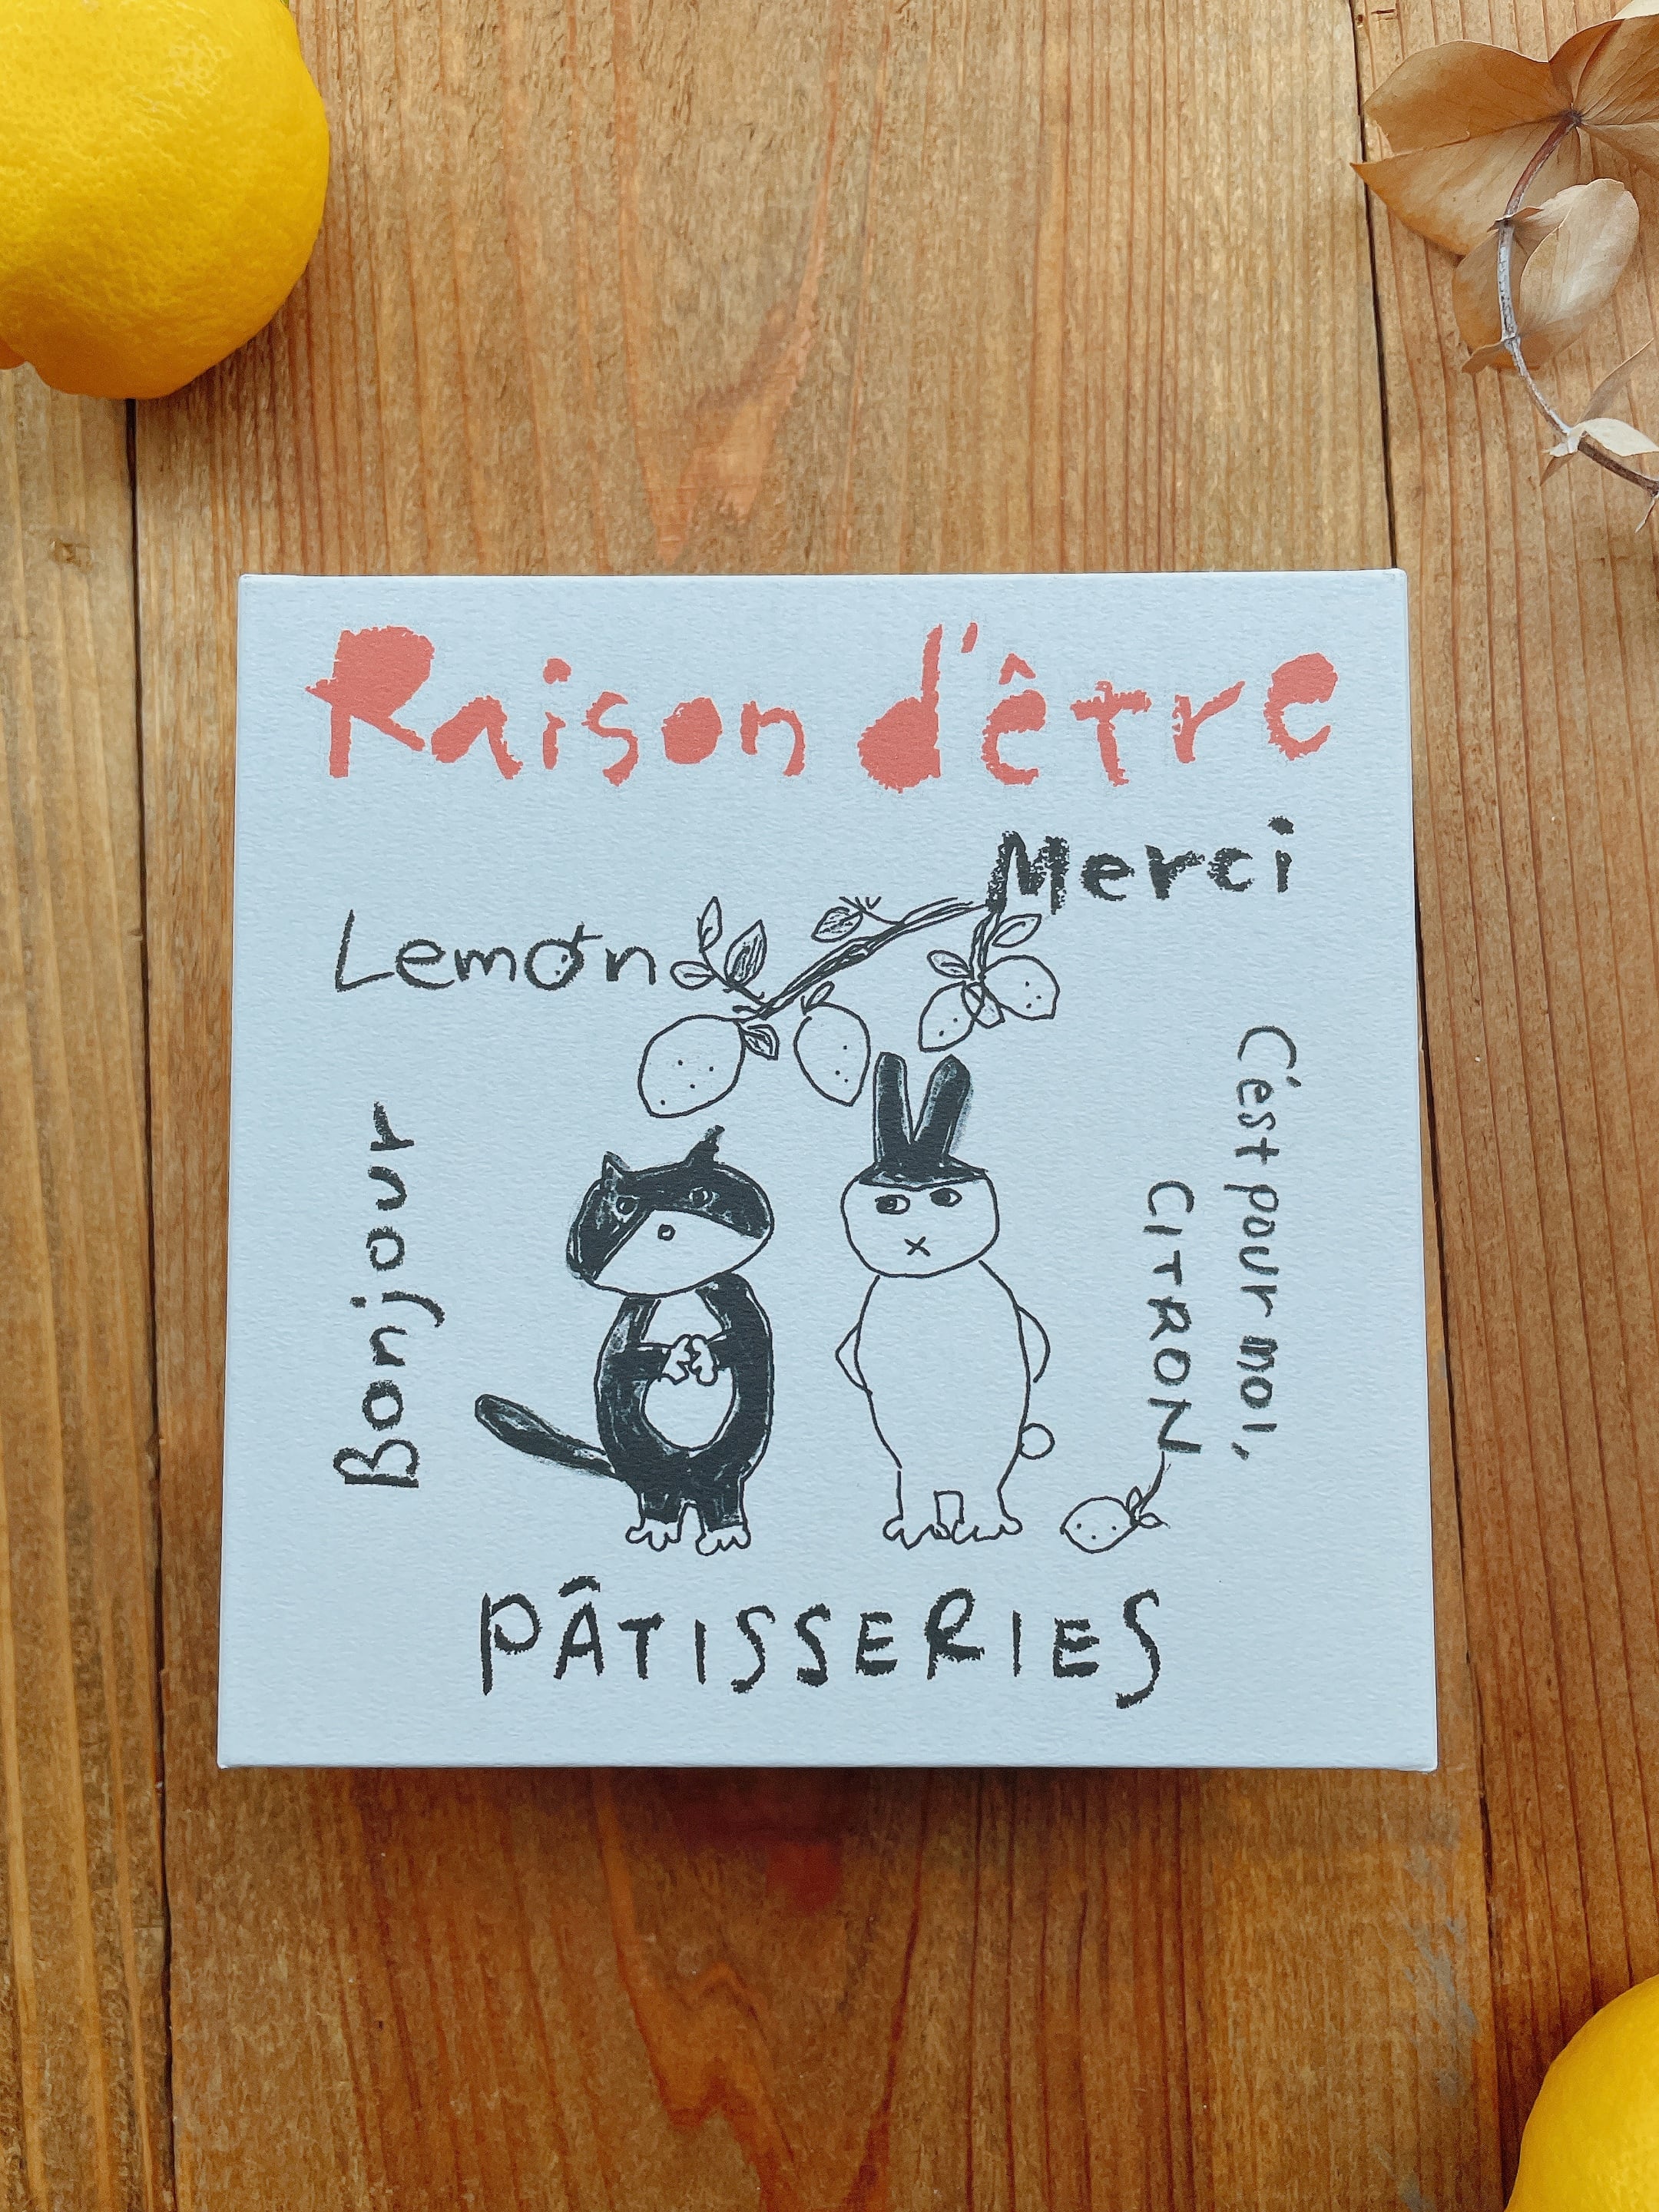 Raison d'être
Merci
Lemon
Bonjour
C'est pour moi,
CITRON
PÂTISSERIES